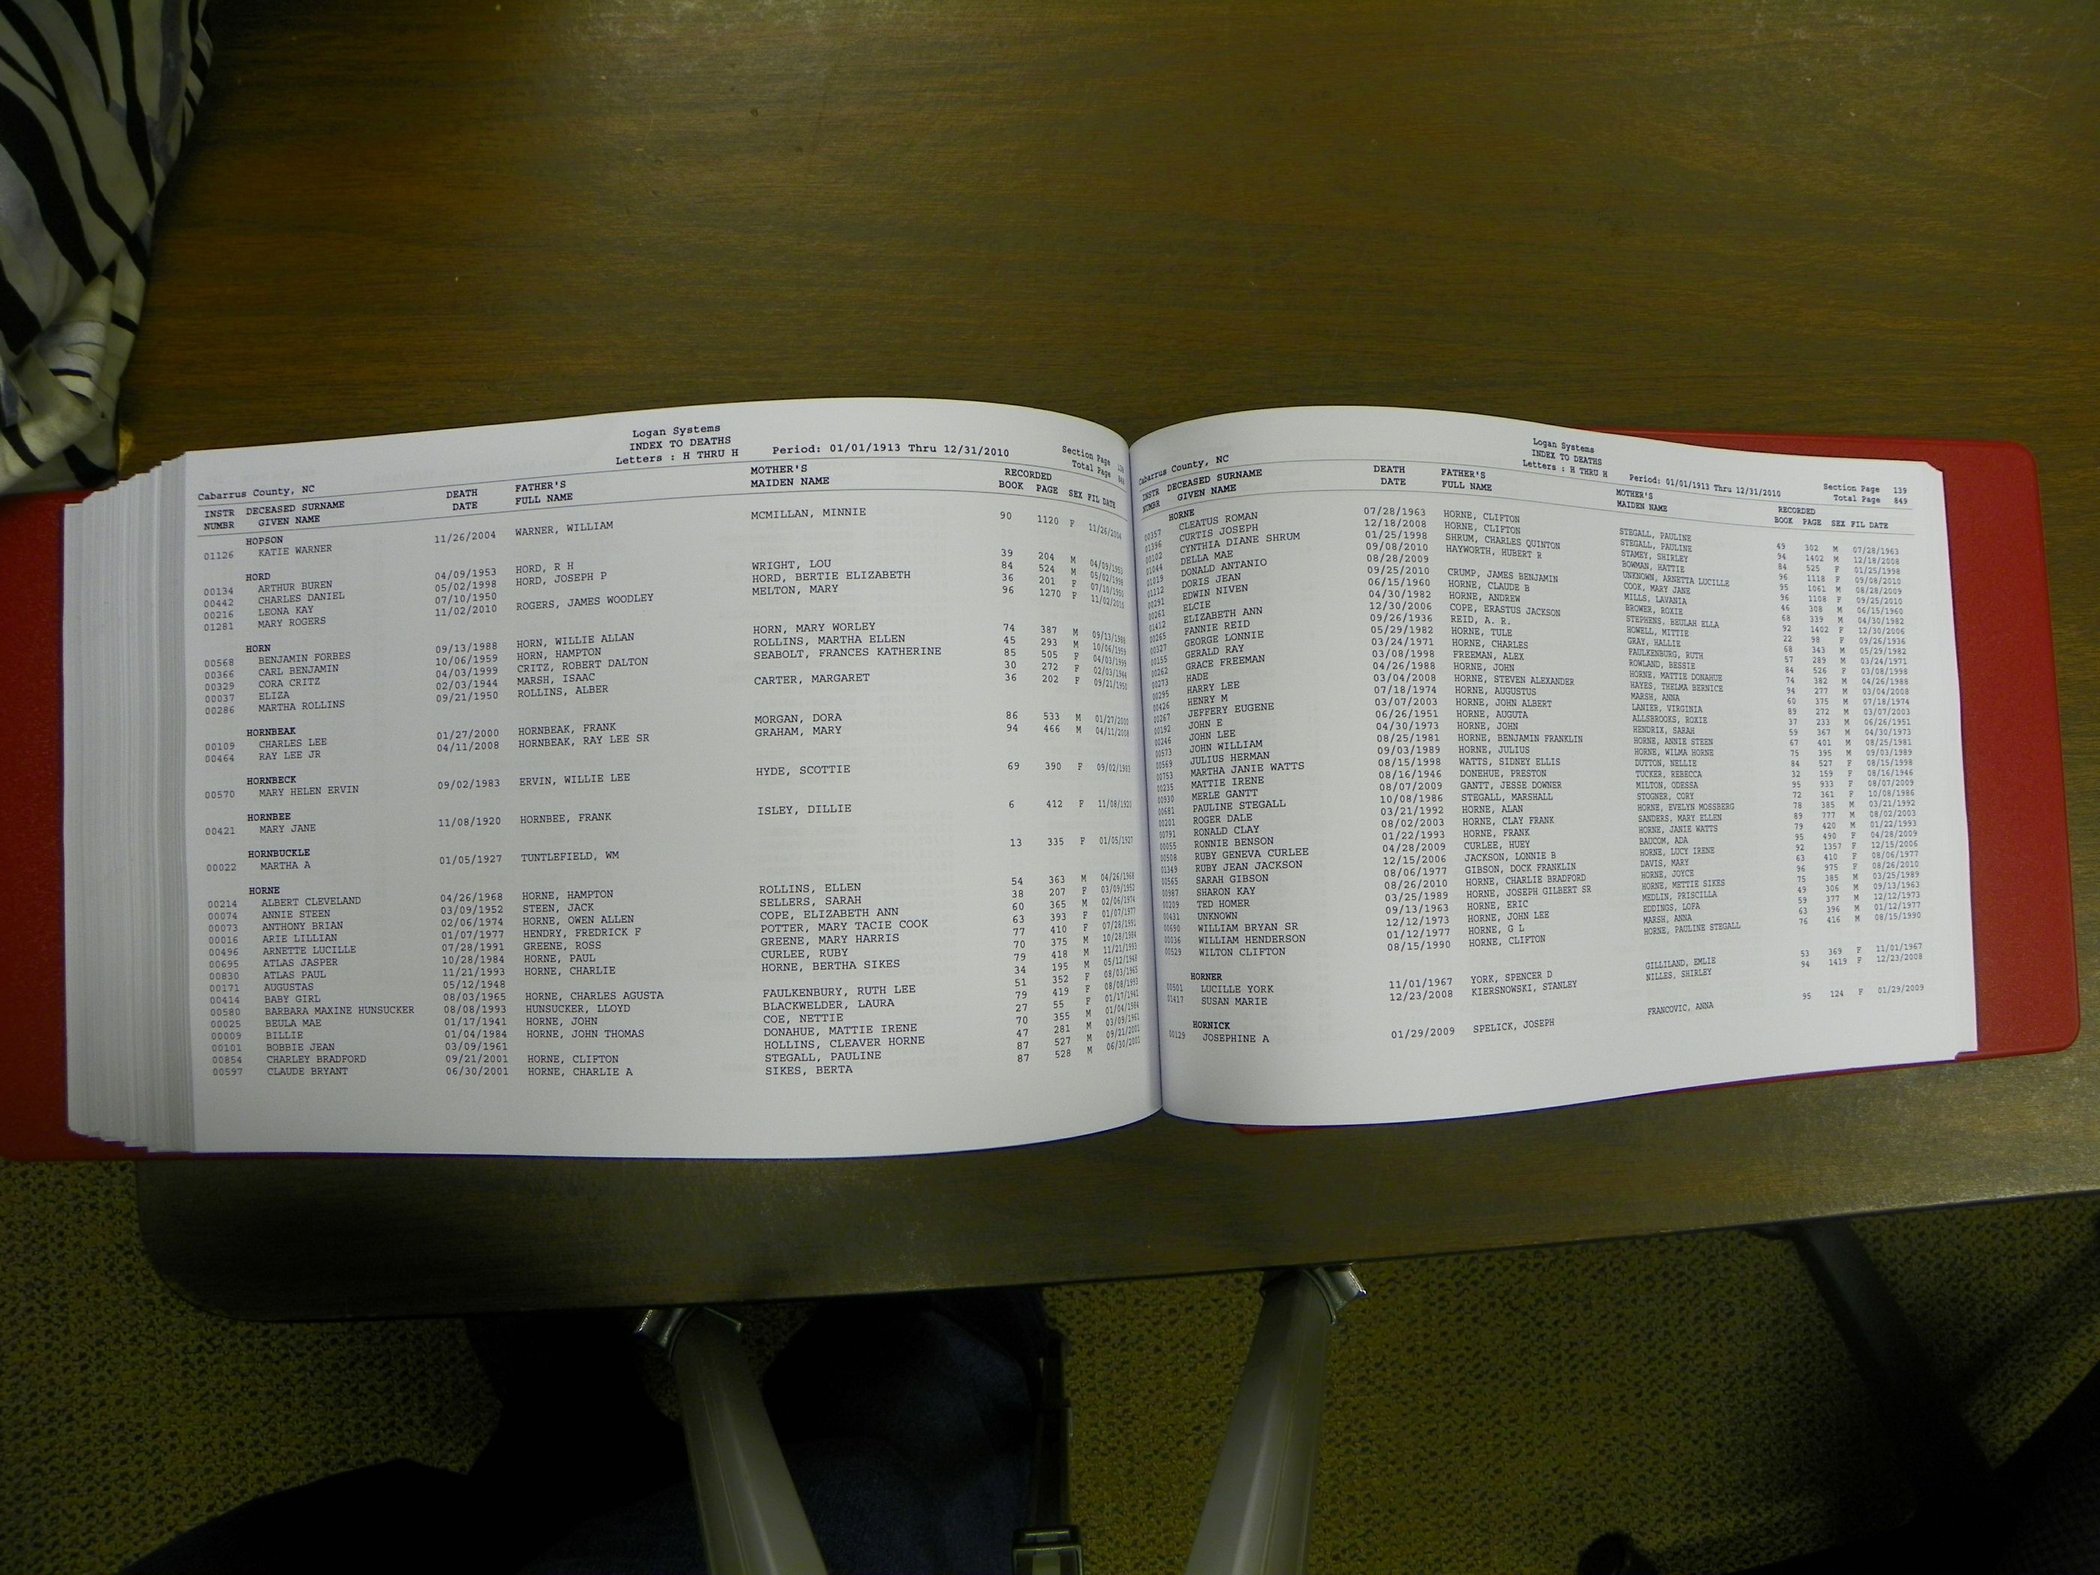 Logan Systems
INDEX TO DEATHS
Letters : H THRU H Period: 01/01/1913 Thru 12/31/2010 Section Page
Total Page
Cabarrus County, NC
INSTR NUMBR DECEASED SURNAME GIVEN NAME DEATH DATE FATHER'S FULL NAME MOTHER'S MAIDEN NAME RECORDED BOOK PAGE SEX FIL DATE
HOPSON
01126 KATIE WARNER 11/26/2004 WARNER, WILLIAM MCMILLAN, MINNIE 90 1120 F 11/26/2004
HORD
00134 ARTHUR BUREN 04/09/1953 HORD, R H WRIGHT, LOU 39 204 M 04/09/1953
00442 CHARLES DANIEL 05/02/1998 HORD, JOSEPH P HORD, BERTIE ELIZABETH 84 524 M 05/02/1998
00216 LEONA KAY 07/10/1950 MELTON, MARY 36 201 F 07/10/1950
01281 MARY ROGERS 11/02/2010 ROGERS, JAMES WOODLEY 96 1270 F 11/02/2010
HORN
00568 BENJAMIN FORBES 09/13/1988 HORN, WILLIE ALLAN HORN, MARY WORLEY 74 387 M 09/13/1988
00366 CARL BENJAMIN 10/06/1959 HORN, HAMPTON ROLLINS, MARTHA ELLEN 45 293 M 10/06/1959
00329 CORA CRITZ 04/03/1999 CRITZ, ROBERT DALTON SEABOLT, FRANCES KATHERINE 85 505 F 04/03/1999
00037 ELIZA 02/03/1944 MARSH, ISAAC 30 272 F 02/03/1944
00286 MARTHA ROLLINS 09/21/1950 ROLLINS, ALBER CARTER, MARGARET 36 202 F 09/21/1950
HORNBEAK
00109 CHARLES LEE 01/27/2000 HORNBEAK, FRANK MORGAN, DORA 86 533 M 01/27/2000
00464 RAY LEE JR 04/11/2008 HORNBEAK, RAY LEE SR GRAHAM, MARY 94 466 M 04/11/2008
HORNBECK
00570 MARY HELEN ERVIN 09/02/1983 ERVIN, WILLIE LEE HYDE, SCOTTIE 69 390 F 09/02/1983
HORNBEE
00421 MARY JANE 11/08/1920 HORNBEE, FRANK ISLEY, DILLIE 6 412 F 11/08/1920
HORNBUCKLE
00022 MARTHA A 01/05/1927 TUNTLEFIELD, WM 13 335 F 01/05/1927
HORNE
00214 ALBERT CLEVELAND 04/26/1968 HORNE, HAMPTON ROLLINS, ELLEN 54 363 M 04/26/1968
00074 ANNIE STEEN 03/09/1952 STEEN, JACK SELLERS, SARAH 38 207 F 03/09/1952
00073 ANTHONY BRIAN 02/06/1974 HORNE, OWEN ALLEN COPE, ELIZABETH ANN 60 365 M 02/06/1974
00016 ARIE LILLIAN 01/07/1977 HENDRY, FREDRICK F POTTER, MARY TACIE COOK 63 393 F 01/07/1977
00496 ARNETTE LUCILLE 07/28/1991 GREENE, ROSS GREENE, MARY HARRIS 77 410 F
00695 ATLAS JASPER 10/28/1984 HORNE, PAUL CURLEE, RUBY 70 375 M 10/28/1984
00830 ATLAS PAUL 11/21/1993 HORNE, CHARLIE HORNE, BERTHA SIKES 79 418 M 11/21/1993
00171 AUGUSTAS 05/12/1948 34 195 M 05/12/1948
00414 BABY GIRL 08/03/1965 HORNE, CHARLES AGUSTA FAULKENBURY, RUTH LEE 51 352 F 08/03/1965
00580 BARBARA MAXINE HUNSUCKER 08/08/1993 HUNSUCKER, LLOYD BLACKWELDER, LAURA 79 419 F 08/08/1993
00025 BEULA MAE 01/17/1941 HORNE, JOHN COE, NETTIE 27 55 F 01/17/1941
00009 BILLIE 01/04/1984 HORNE, JOHN THOMAS DONAHUE, MATTIE IRENE 70 355 M 01/04/1984
00101 BOBBIE JEAN 03/09/1961 HOLLINS, CLEAVER HORNE 47 281 M 03/09/1961
00854 CHARLEY BRADFORD 09/21/2001 HORNE, CLIFTON STEGALL, PAULINE 87 527 M 09/21/2001
00597 CLAUDE BRYANT 06/30/2001 HORNE, CHARLIE A SIKES, BERTA 87 528 M 06/30/2001
Logan Systems
INDEX TO DEATHS
Letters : H THRU H Period: 01/01/1913 Thru 12/31/2010 Section Page 139
Total Page 849
Cabarrus County, NC
INSTR NUMBR DECEASED SURNAME GIVEN NAME DEATH DATE FATHER'S FULL NAME MOTHER'S MAIDEN NAME RECORDED BOOK PAGE SEX FIL DATE
HORNE
00357 CLEATUS ROMAN 07/28/1963 HORNE, CLIFTON STEGALL, PAULINE 49 302 M 07/28/1963
01396 CURTIS JOSEPH 12/18/2008 HORNE, CLIFTON STEGALL, PAULINE 94 1402 M 12/18/2008
00102 CYNTHIA DIANE SHRUM 01/25/1998 SHRUM, CHARLES QUINTON STAMEY, SHIRLEY 84 525 F 01/25/1998
01044 DELLA MAE 09/08/2010 HAYWORTH, HUBERT R BOWMAN, HATTIE 96 1118 F 09/08/2010
01019 DONALD ANTANIO 08/28/2009 UNKNOWN, ARNETTA LUCILLE 95 1061 M 08/28/2009
01112 DORIS JEAN 09/25/2010 CRUMP, JAMES BENJAMIN COOK, MARY JANE 96 1108 F 09/25/2010
00291 EDWIN NIVEN 06/15/1960 HORNE, CLAUDE B MILLS, LAVANIA 46 308 M 06/15/1960
00261 ELCIE 04/30/1982 HORNE, ANDREW BROWER, ROXIE 68 339 M 04/30/1982
01412 ELIZABETH ANN 12/30/2006 COPE, ERASTUS JACKSON STEPHENS, BEULAH ELLA 92 1402 F 12/30/2006
00265 FANNIE REID 09/26/1936 REID, A. R. HOWELL, MITTIE 22 98 F 09/26/1936
00327 GEORGE LONNIE 05/29/1982 HORNE, TULE GRAY, HALLIE 68 343 M 05/29/1982
00155 GERALD RAY 03/24/1971 HORNE, CHARLES FAULKENBURG, RUTH 57 289 M 03/24/1971
00262 GRACE FREEMAN 03/08/1998 FREEMAN, ALEX ROWLAND, BESSIE 84 526 F 03/08/1998
00273 HADE 04/26/1988 HORNE, JOHN HORNE, MATTIE DONAHUE 74 382 M 04/26/1988
00295 HARRY LEE 03/04/2008 HORNE, STEVEN ALEXANDER HAYES, THELMA BERNICE 94 277 M 03/04/2008
00426 HENRY M 07/18/1974 HORNE, AUGUSTUS MARSH, ANNA 60 375 M 07/18/1974
00267 JEFFERY EUGENE 03/07/2003 HORNE, JOHN ALBERT LANIER, VIRGINIA 89 272 M 03/07/2003
00192 JOHN E 06/26/1951 HORNE, AUGUTA ALLSBROOKS, ROXIE 37 233 M 06/26/1951
00246 JOHN LEE 04/30/1973 HORNE, JOHN HENDRIX, SARAH 59 367 M 04/30/1973
00573 JOHN WILLIAM 08/25/1981 HORNE, BENJAMIN FRANKLIN HORNE, ANNIE STEEN 67 401 M 08/25/1981
00569 JULIUS HERMAN 09/03/1989 HORNE, JULIUS HORNE, WILMA HORNE 75 395 M 09/03/1989
00753 MARTHA JANIE WATTS 08/15/1998 WATTS, SIDNEY ELLIS DUTTON, NELLIE 84 527 F 08/15/1998
00235 MATTIE IRENE 08/16/1946 DONEHUE, PRESTON TUCKER, REBECCA 32 159 F 08/16/1946
00930 MERLE GANTT 08/07/2009 GANTT, JESSE DOWNER MILTON, ODESSA 95 933 F 08/07/2009
00681 PAULINE STEGALL 10/08/1986 STEGALL, MARSHALL STOGNER, CORY 72 361 F 10/08/1986
00201 ROGER DALE 03/21/1992 HORNE, ALAN HORNE, EVELYN MOSSBERG 78 385 M 03/21/1992
00791 RONALD CLAY 08/02/2003 HORNE, CLAY FRANK SANDERS, MARY ELLEN 89 777 M 08/02/2003
00055 RONNIE BENSON 01/22/1993 HORNE, FRANK HORNE, JANIE WATTS 79 420 M 01/22/1993
00508 RUBY GENEVA CURLEE 04/28/2009 CURLEE, HUEY BAUCOM, ADA 95 490 F 04/28/2009
01349 RUBY JEAN JACKSON 12/15/2006 JACKSON, LONNIE B HORNE, LUCY IRENE 92 1357 F 12/15/2006
00565 SARAH GIBSON 08/06/1977 GIBSON, DOCK FRANKLIN DAVIS, MARY 63 410 F 08/06/1977
00987 SHARON KAY 08/26/2010 HORNE, CHARLIE BRADFORD HORNE, JOYCE 96 975 F 08/26/2010
00209 TED HOMER 03/25/1989 HORNE, JOSEPH GILBERT SR HORNE, METTIE SIKES 75 385 M 03/25/1989
00431 UNKNOWN 09/13/1963 HORNE, ERIC MEDLIN, PRISCILLA 49 306 M 09/13/1963
00690 WILLIAM BRYAN SR 12/12/1973 HORNE, JOHN LEE EDDINGS, LOFA 59 377 M 12/12/1973
00036 WILLIAM HENDERSON 01/12/1977 HORNE, G L MARSH, ANNA 63 396 M 01/12/1977
00529 WILTON CLIFTON 08/15/1990 HORNE, CLIFTON HORNE, PAULINE STEGALL 76 416 M 08/15/1990
HORNER
00501 LUCILLE YORK 11/01/1967 YORK, SPENCER D GILLILAND, EMLIE 53 369 F 11/01/1967
01417 SUSAN MARIE 12/23/2008 KIERSNOWSKI, STANLEY NILLES, SHIRLEY 94 1419 F 12/23/2008
HORNICK
00129 JOSEPHINE A 01/29/2009 SPELICK, JOSEPH FRANCOVIC, ANNA 95 124 F 01/29/2009